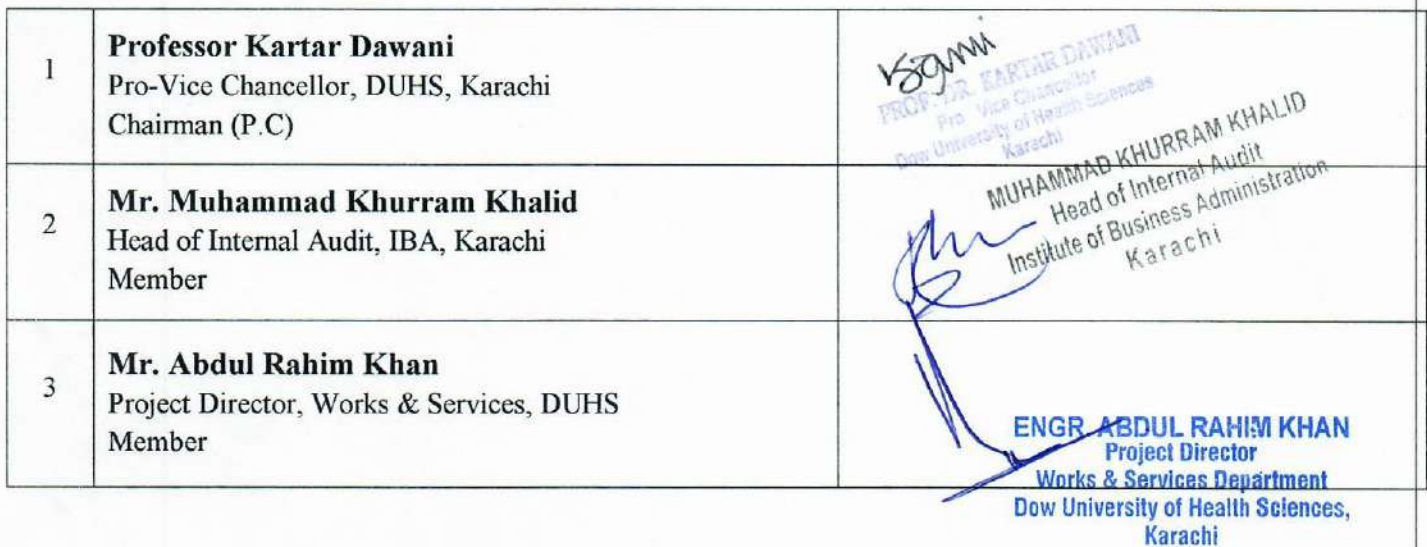 1
Professor Kartar Dawani
Pro-Vice Chancellor, DUHS, Karachi
Chairman (P.C)
PROF. DR. KARTAR DAWANI
Pro Vice Chancellor
Dow University of Health Sciences
Karachi
2
Mr. Muhammad Khurram Khalid
Head of Internal Audit, IBA, Karachi
Member
MUHAMMAD KHURRAM KHALID
Head of Internal Audit
Institute of Business Administration
Karachi
3
Mr. Abdul Rahim Khan
Project Director, Works & Services, DUHS
Member
ENGR. ABDUL RAHIM KHAN
Project Director
Works & Services Department
Dow University of Health Sciences,
Karachi